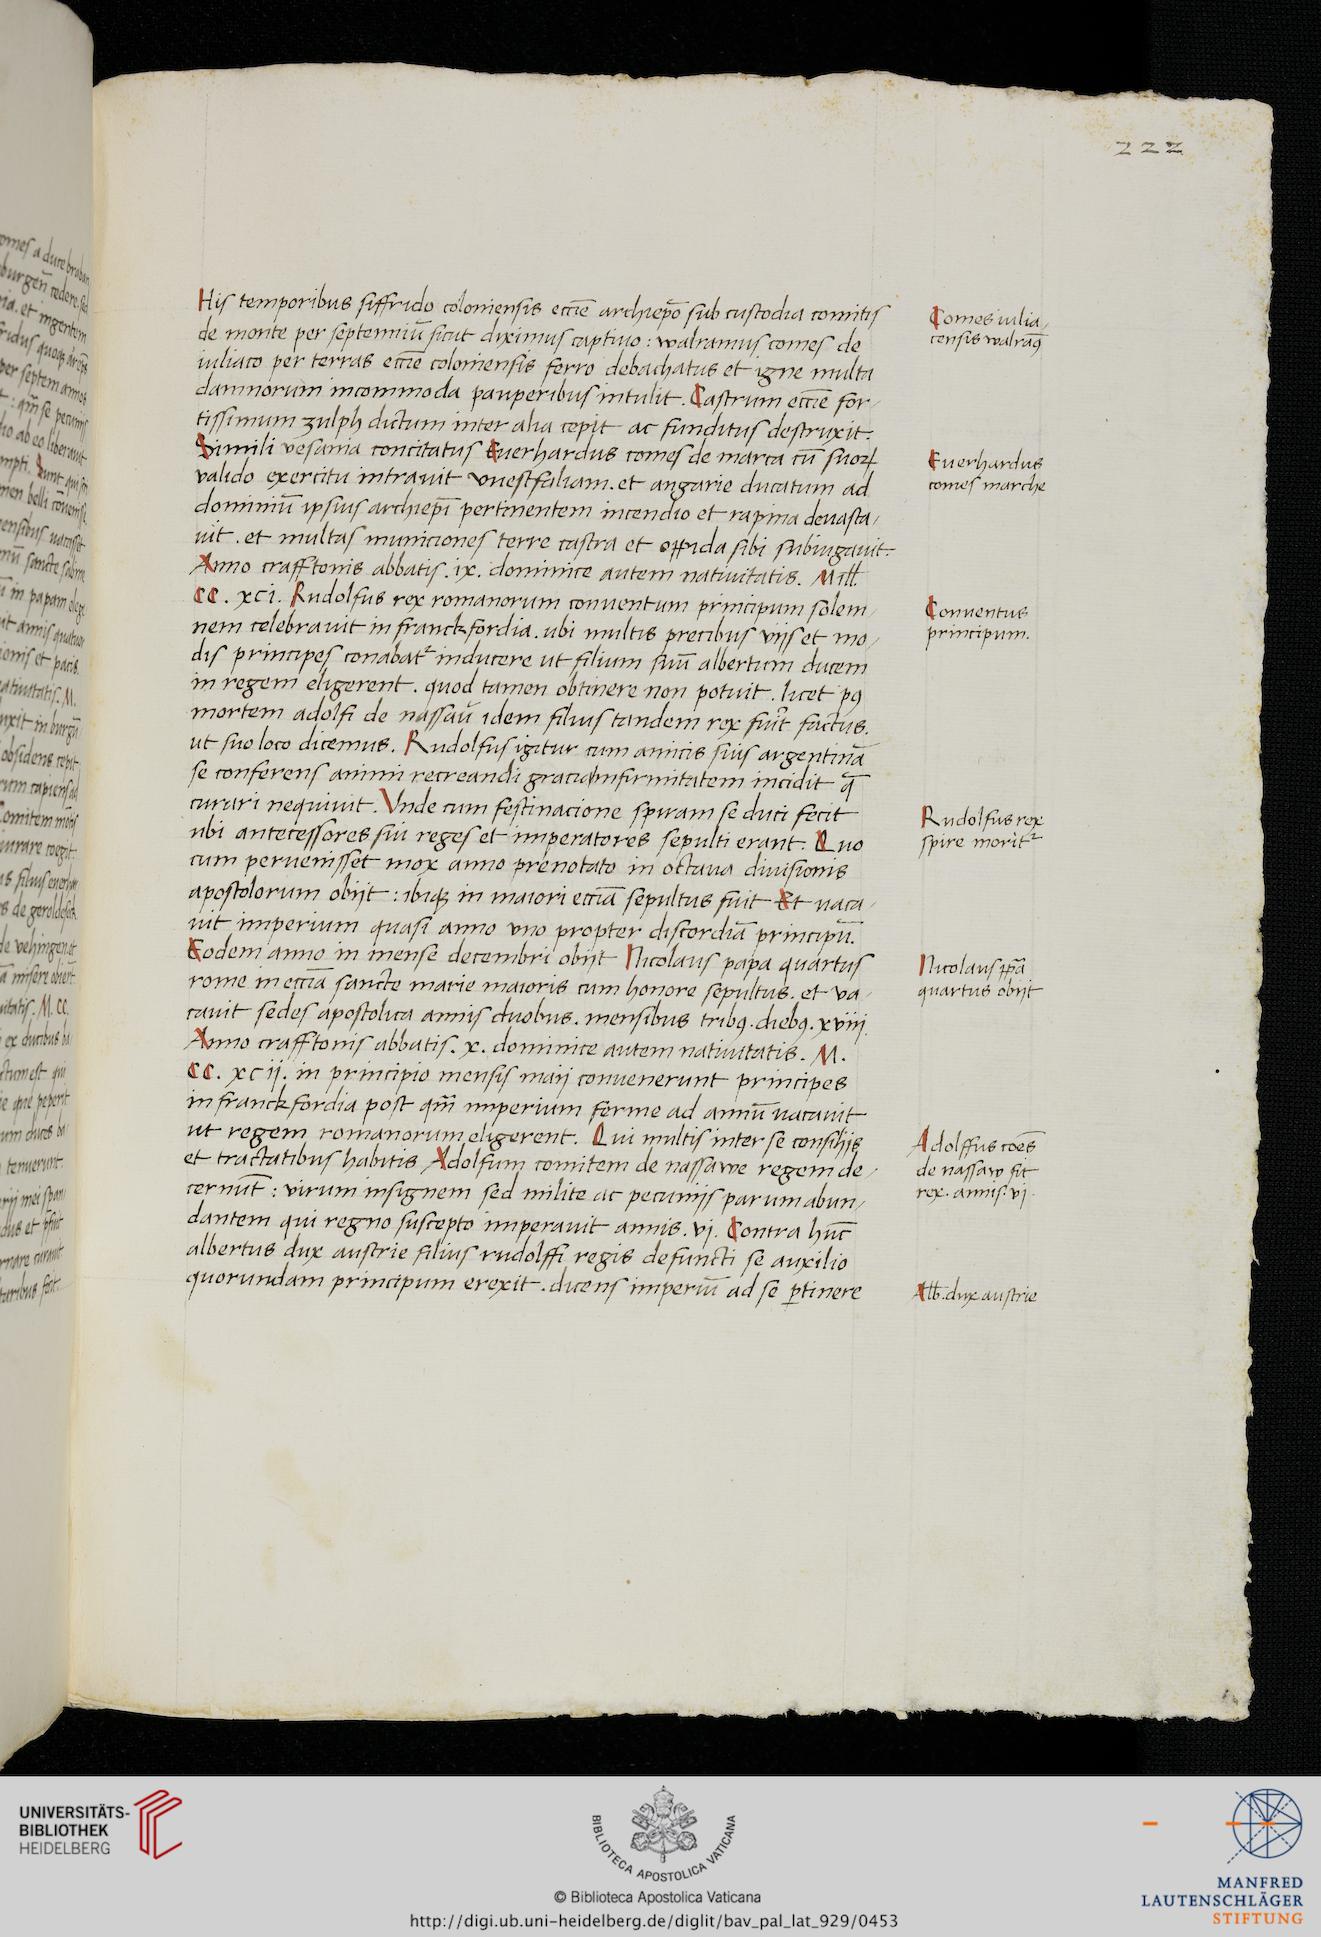 222
His temporibus siffrido coloniensis eccīe archiep̄o sub custodia comitis
de monte per septenniū sicut diximus captiuo : walramus comes de
iuliaco per terras eccīe coloniensis ferro debachatus et igne multa
damnorum incommoda pauperibus intulit . Castrum eccīe for/
tissimum zulph dictum inter alia cepit ac funditus destruxit .
Simili vesania concitatus Euerhardus comes de marca cū suoꝝ
valido exercitu intrauit vuestfaliam . et angarie ducatum ad
dominiū ipsius archiep̄i pertinentem incendio et rapina deuasta/
uit . et multas municiones terre castra et oppida sibi subiugauit .
Anno crafftonis abbatis . ix . dominice autem natiuitatis . Mill̄
CC . xci . Rudolfus rex romanorum conuentum principum solem/
nem celebrauit in franckfordia . ubi multis precibus viis et mo/
dis principes conabat᷑ inducere ut filium suū albertum ducem
in regem eligerent . quod tamen obtinere non potuit . licet pꝰ
mortem adolfi de nassaū idem filius tandem rex fuit factus .
ut suo loco dicemus . Rudolfus igitur cum amicis suis argentinā
se conferens animi recreandi gracia infirmitatem incidit q̄
curari nequiuit . Vnde cum festinacione spiram se duci fecit
ubi antecessores sui reges et imperatores sepulti erant . Quo
cum peruenisset mox anno prenotato in octaua diuisionis
apostolorum obijt : ibiqꝫ in maiori eccīa sepultus fuit Et uaca/
uit imperium quasi anno vno propter discordiā principū .
Eodem anno in mense decembri obijt Nicolaus papa quartus
rome in eccīa sancte marie maioris cum honore sepultus . et va/
cauit sedes apostolica annis duobus . mensibus tribꝰ . diebꝰ . xviij .
Anno crafftonis abbatis . x . dominice autem natiuitatis . M .
CC . xcij . in principio mensis maij conuenerunt principes
in franckfordia post qm̄ imperium ferme ad annū uacauit
ut regem romanorum eligerent . Qui multis inter se consilijs
et tractatibus habitis Adolfum comitem de nassawe regem de/
cernūt : virum insignem sed milite ac pecunijs parum abun/
dantem qui regno suscepto imperauit annis . vi . Contra hūc
albertus dux austrie filius rudolffi regis defuncti se auxilio
quorundam principum erexit . dicens imperiū ad se ꝑtinere
Comes iulia/
censis walramꝰ
Euerhardus
comes marche
Conuentus
principum .
Rudolfus rex
spire morit᷑
Nicolaus pp̄a
quartus obijt
Adolffus com̄es
de nassaw fit
rex . annis . vi .
Alb̄ . dux austrie
UNIVERSITÄTS-
BIBLIOTHEK
HEIDELBERG
BIBLIOTECA APOSTOLICA VATICANA
© Biblioteca Apostolica Vaticana
http://digi.ub.uni-heidelberg.de/diglit/bav_pal_lat_929/0453
MANFRED
LAUTENSCHLÄGER
STIFTUNG